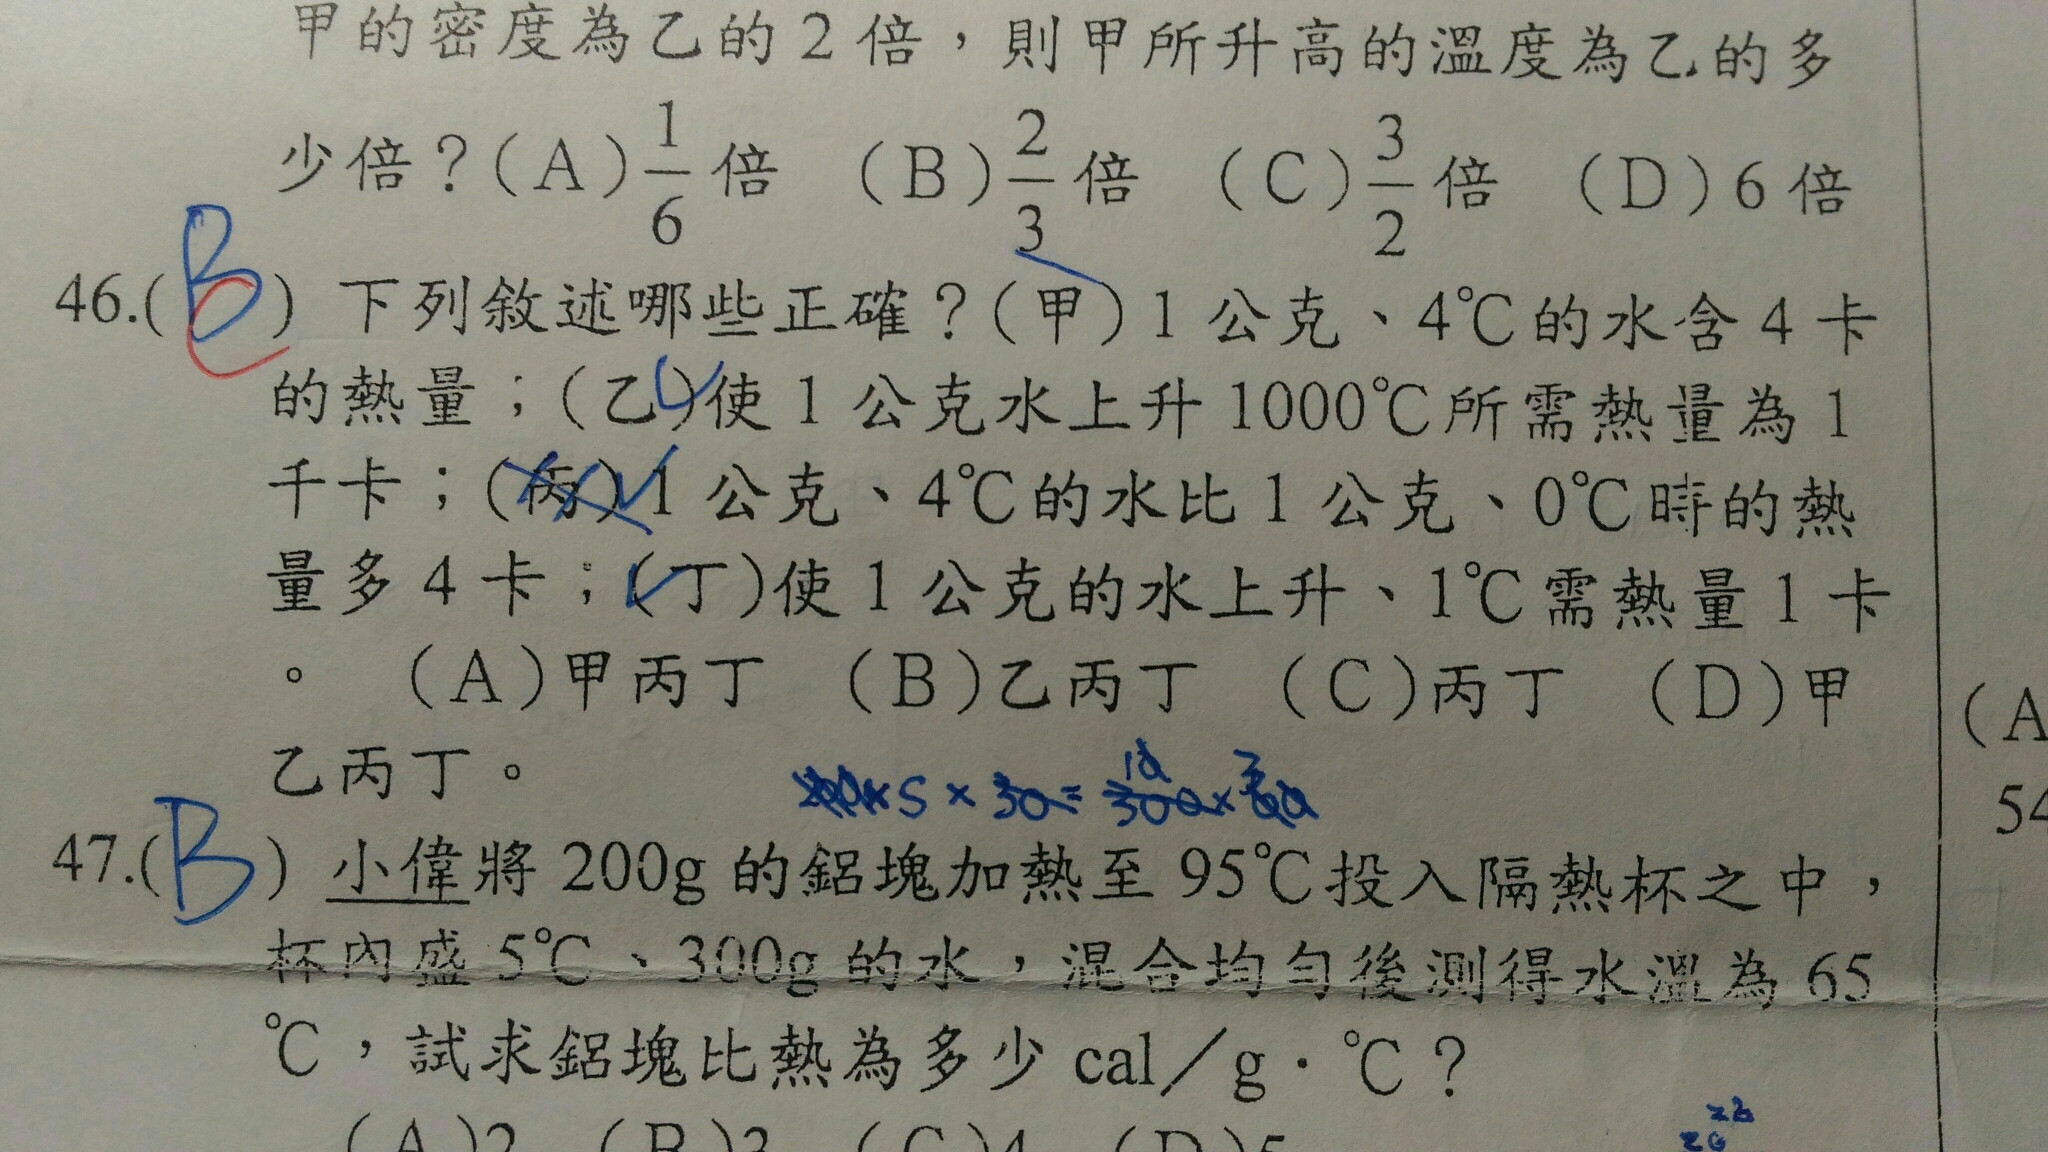 甲的密度為乙的2倍,則甲所升高的溫度為乙的多
少倍?(A)1/6倍 (B)2/3倍 (C)3/2倍 (D)6倍
46.(B C) 下列敘述哪些正確?(甲)1公克、4℃的水含4卡
的熱量;(乙)使1公克水上升1000℃所需熱量為1
千卡;(丙)1公克、4℃的水比1公克、0℃時的熱
量多4卡;(丁)使1公克的水上升、1℃需熱量1卡
。 (A)甲丙丁 (B)乙丙丁 (C)丙丁 (D)甲
乙丙丁。
× 5 × 30 =
47.(B) 小偉將200g的鋁塊加熱至95℃投入隔熱杯之中,
杯內盛5℃、300g的水,混合均勻後測得水溫為65
℃,試求鋁塊比熱為多少cal/g·℃?
(A)2 (B)3 (C)4 (D)5
(A
54